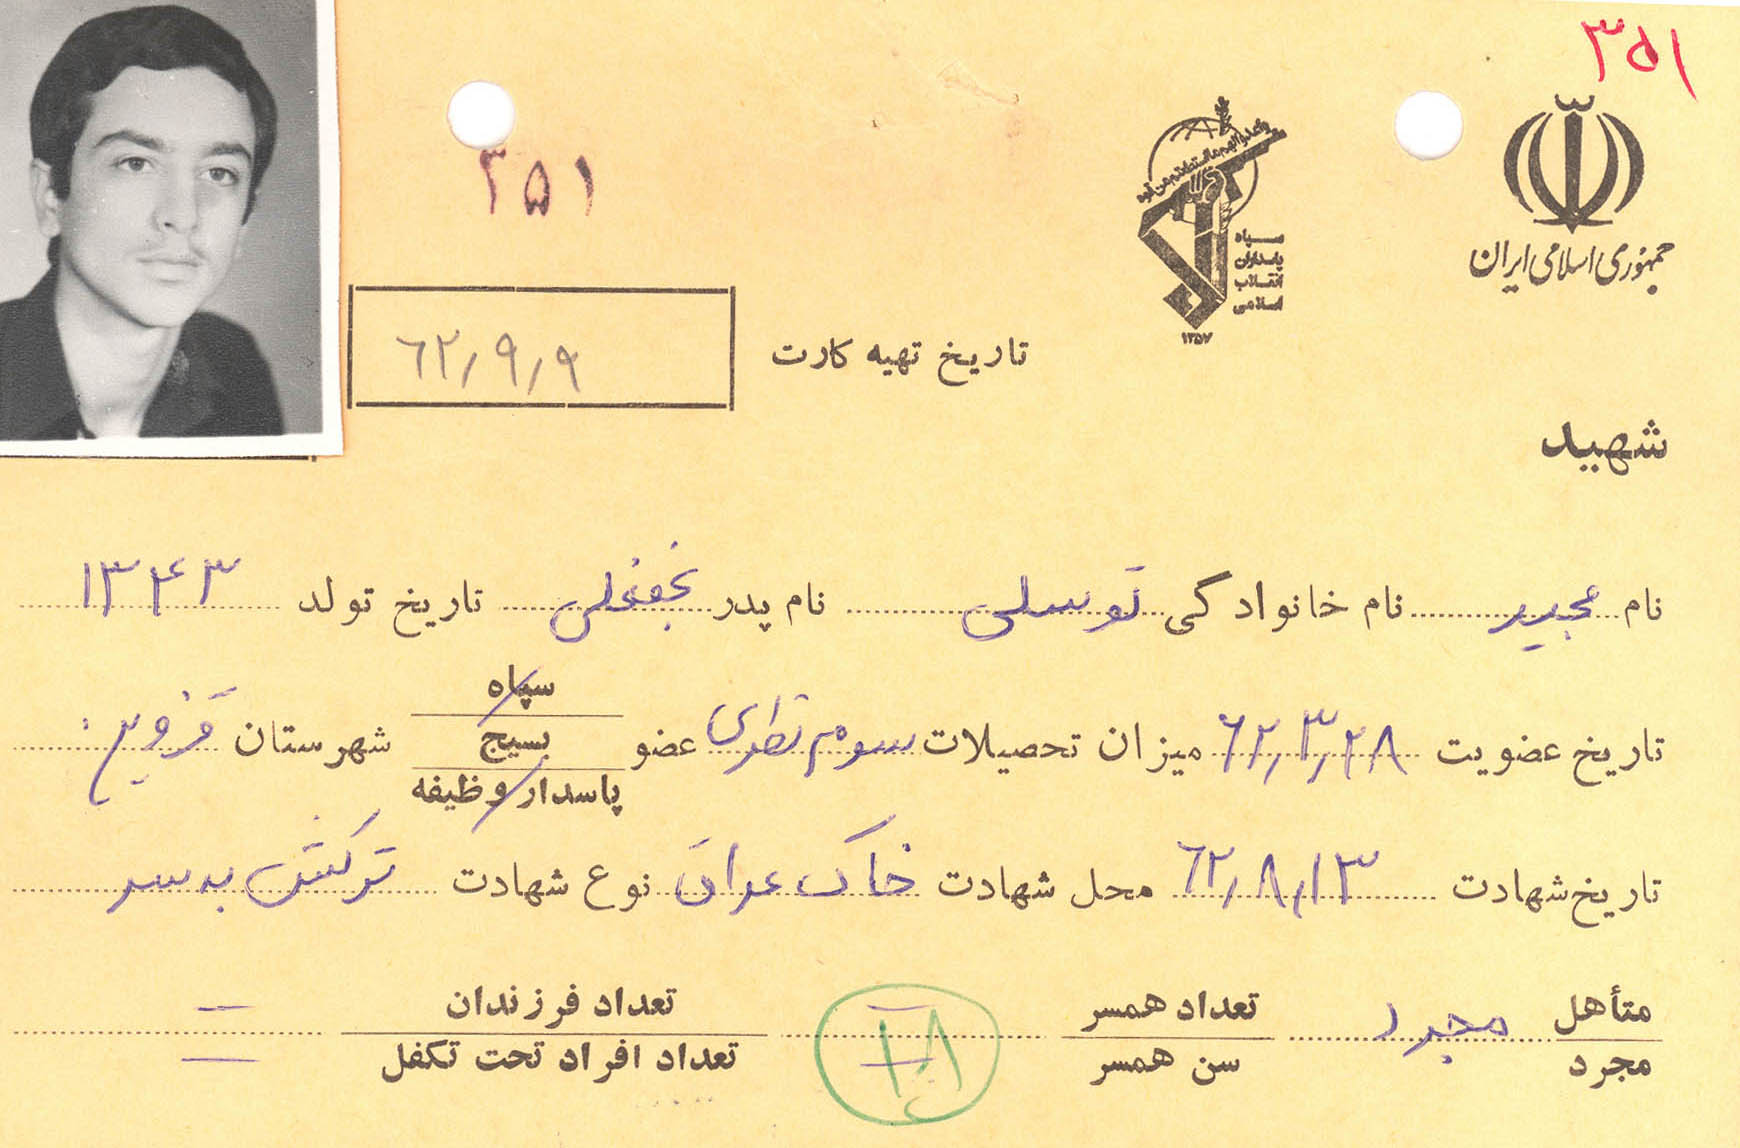 ۳۵۱
۳۵۱
جمهوری اسلامی ایران
سپاه
پاسداران
انقلاب
اسلامی
۱۳۵۷
تاریخ تهیه کارت ۶۲/۹/۹
شهید
نام مجید نام خانوادگی توسلی نام پدر نجفعلی تاریخ تولد ۱۳۴۳
تاریخ عضویت ۶۲/۳/۲۸ میزان تحصیلات سوم نظری عضو سپاه بسیج پاسدار وظیفه شهرستان قزوین
تاریخ شهادت ۶۲/۸/۱۳ محل شهادت خاک عراق نوع شهادت ترکش به سر
متأهل مجرد مجرد تعداد همسر — تعداد فرزندان —
سن همسر — تعداد افراد تحت تکفل —